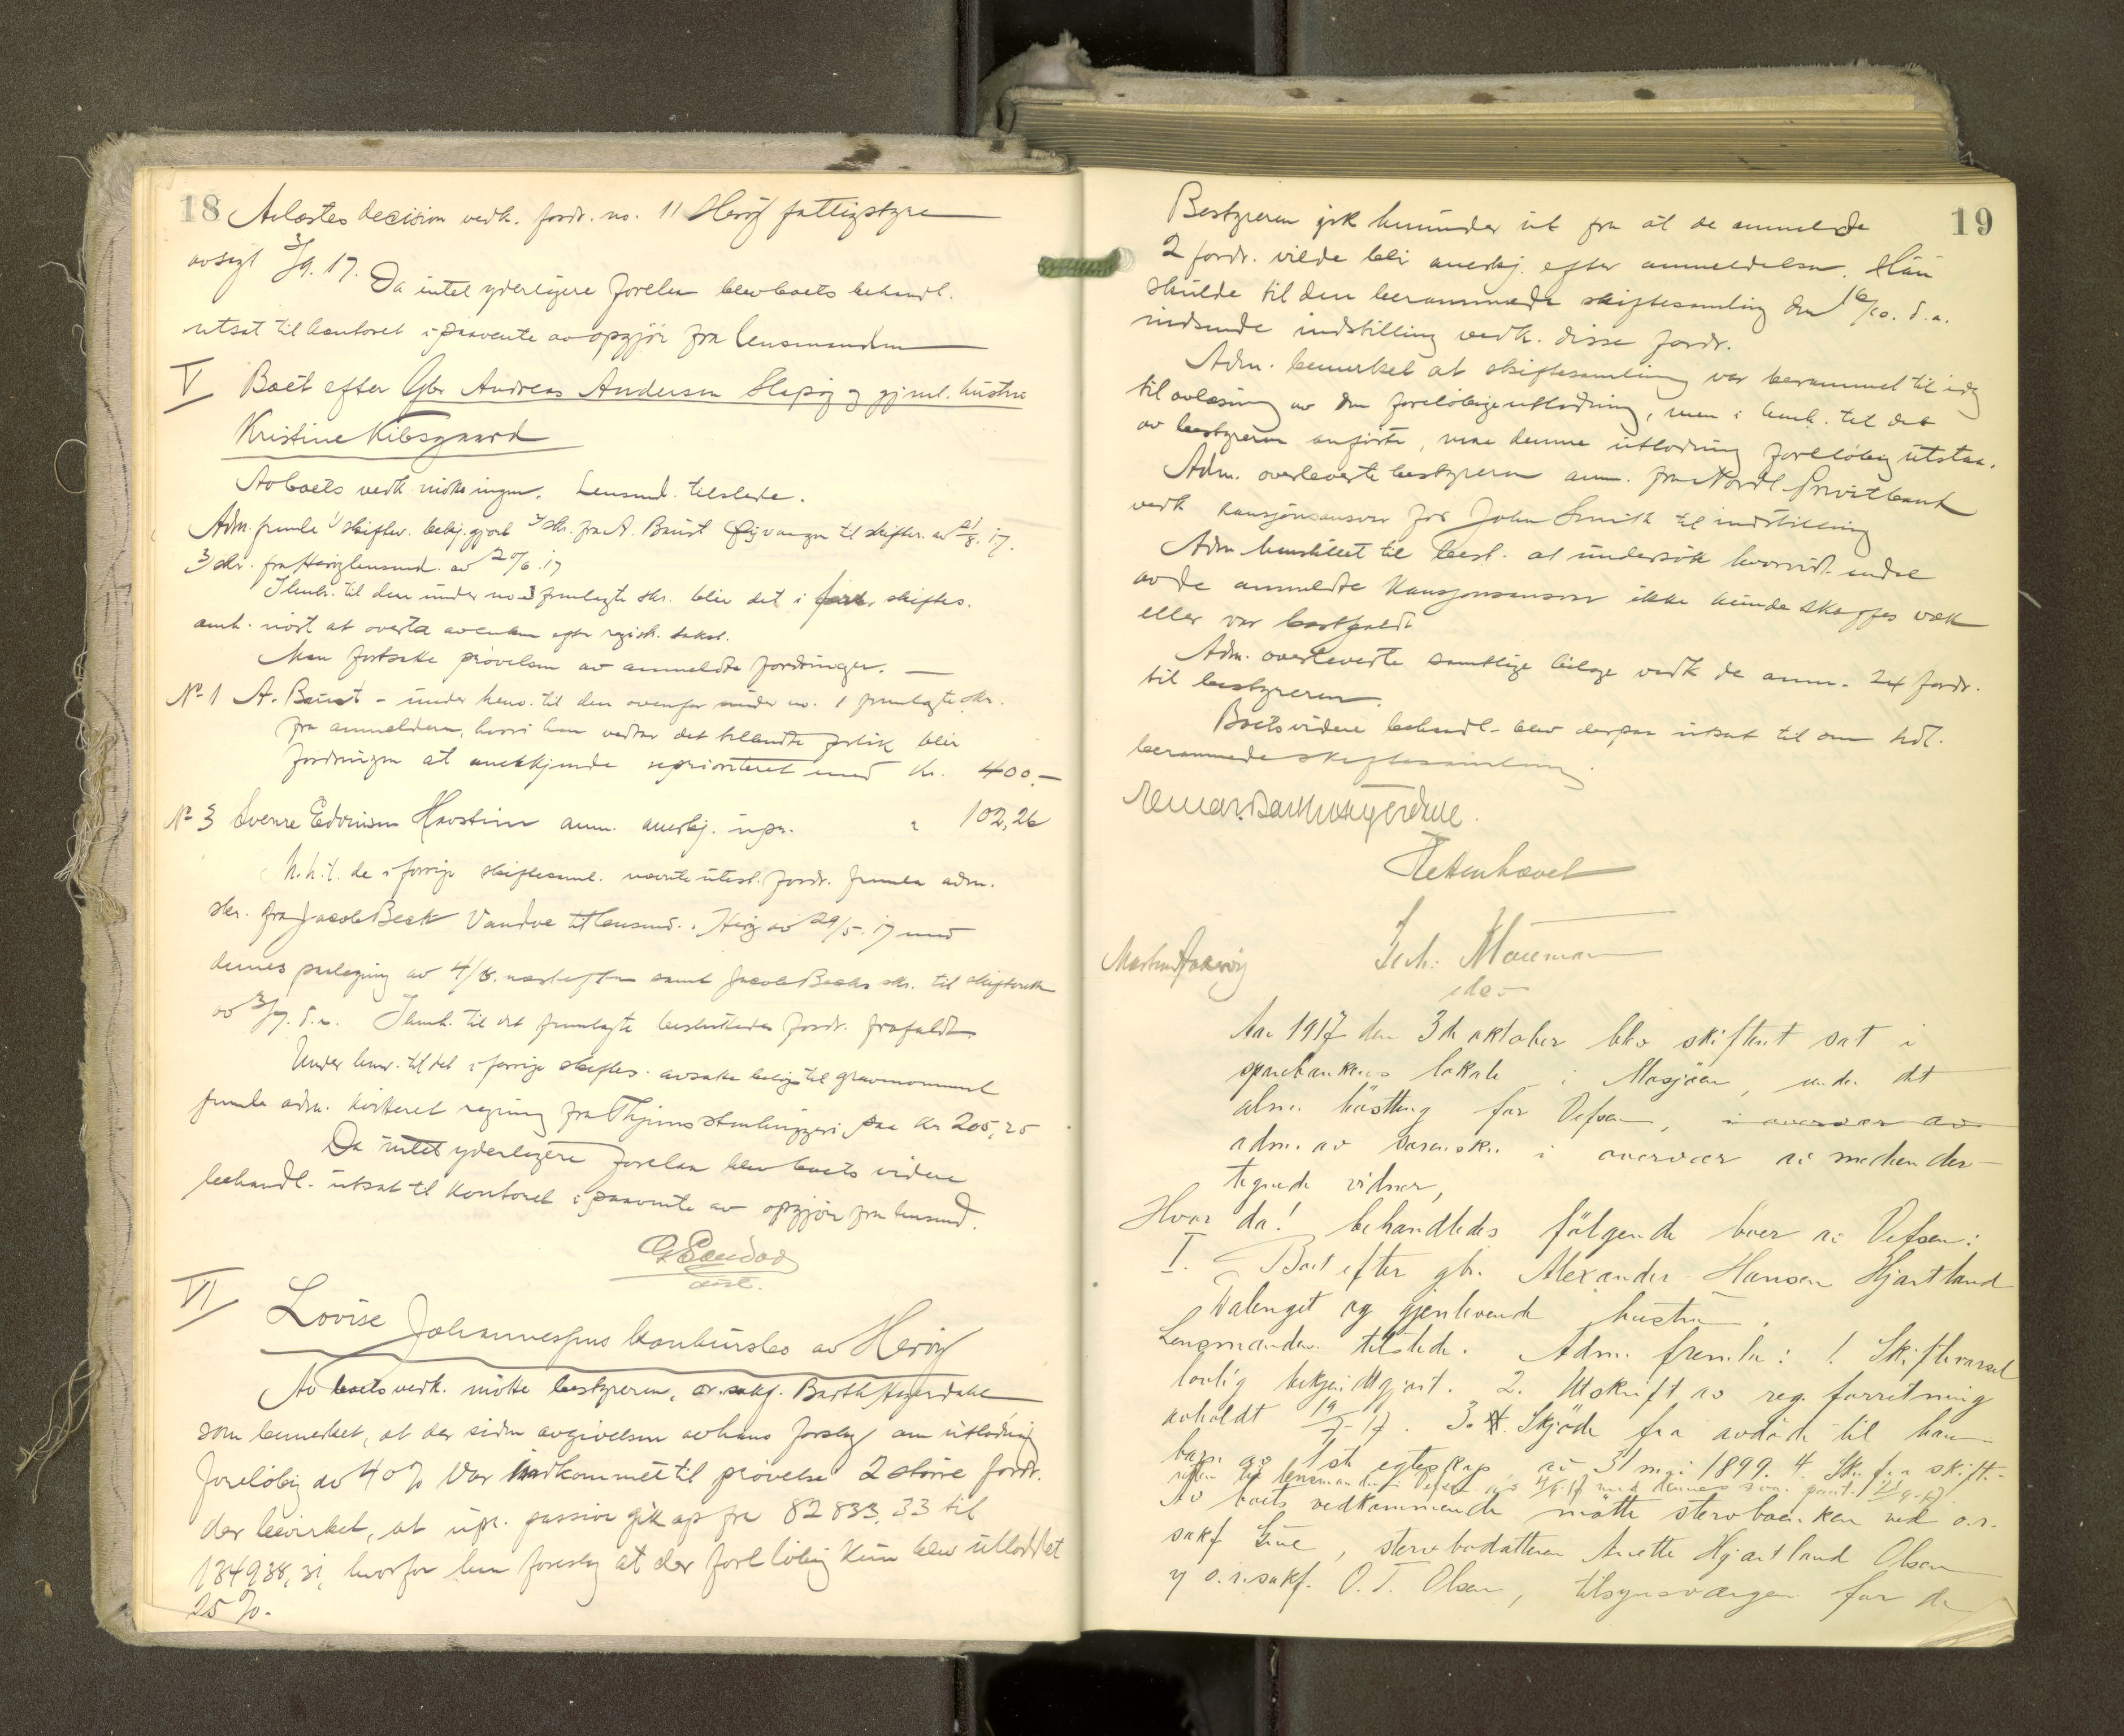 18 Avlæstes decision vedk. fordr. no. 11 Herøy fattigstyre
avsagt 3/9. 17.
Da intet yderligere forelaa blev boets behandl.
utsat til kontoret i paavente av opgjør fra lensmanden
V Boet efter Gbr Andreas Andersen Slapøy og gjenl. hustru
Kristine Kibsgaard
Av boets vedk. møtte ingen. Lensmd. tilstede.
Adm. fremla 1) skiftev. bekj.gjort 2) skr. fra A. Baust til skifter. av 21/8. 17.
3) skr. fra Herøy lensmd. av 20/6. 17
I henh. til den under no 3 fremlagte skr. blir det i skiftes.
Man fortsatte prøvelsen av anmeldte fordringer. —
No 1 A. Baust - under henv. til den ovenfor under no. 1 fremlagte skr.
fra anmelderen, hvori han vedtar det blir
fordringen at anerkjende uprioriteret med kr. 400.—
No 3 Sverre Edvinsen Havstein anm. anerkj. upr. " 102,26
M.h.t. de i forrige skiftesaml. nævnte utest. fordr. fremla adm.
skr. fra Jacob Beck Vandve til lensmd. i Herøy av 29/5. 17 med
dennes paategning av 4/6. næstefter samt Jacob Becks skr. til skifteretten
av 3/9. d.a. I henh. til det fremlagte besluttedes fordr. frafaldt.
Under henv. til det i forrige skiftes. avsatte beløp til gravmonument
fremla adm. kvitteret regning fra Thjems stenhuggeri paa kr 205,25
Da intet yderligere forelaa blev boets videre
behandl. utsat til kontoret i paavente av opgjør fra lensmd.
VI Lovise Johannesens konkursbo av Herøy
Av boets vedk. møtte bestyreren, o.r.sakf. Barth Heyerdahl
som bemerket, at der siden avgivelsen av hans forslag om utlodning
foreløbig av 40% var indkommet til prøvelse 2 større fordr.
der bevirket, at upr. passiva gik op fra 82833,33 til
134938,31, hvorfor han foreslog at der foreløbig kun blev utloddet
25%.
19
Bestyreren gik herunder ut fra at de anmeldte
2 fordr. vilde bli anerkj. efter anmeldelsen. Han
skulde til den berammede skiftesamling den 16/10. d.a.
indsende indstilling vedk. disse fordr.
Adm. bemerket at skiftesamling var berammet til idag
til avlæsning av den foreløbige utlodning, men i henh. til det
av bestyreren anførte, maa denne utlodning foreløbig utstaa.
Adm. overleverte bestyreren anm. fra Nordl. Privatbank
vedk kausjonsansvar for John Smith til indstilling
Adm henstillet til best. at undersøke hvorvidt endel
av de anmeldte kausjonsansvar ikke kunde skaffes væk
eller var bortfaldt
Adm. overleverte samtlige bilage vedk de anm. 24 fordr.
til bestyreren.
Boets videre behandl. blev derpaa utsat til om
berammede skiftesamling.
Aar 1917 den 3de oktober blev skifteret sat i
sparebankens lokale i Mosjøen, under det
alm. høstting for Vefsen, i overvær av
adm. av sorenskr. i overvær av medunder-
tegnede vidner,
Hvor da! behandledes følgende boer av Vefsen:
I. Boet efter gbr. Alexander Hansen Hjartland
Dalenget og gjenlevende hustru.
Lensmanden tilstede. Adm. fremla: 1. Skiftevarsel
lovlig bekjendtgjort. 2. Utskrift av reg. forretning
avholdt 19/7-17. 3. Skjøde fra avdøde til hans
barn av 1ste egteskap av 31 mai 1899. 4. Skr. fra skifte-
retten til lensmanden i Vefsen av 4/9-17 med dennes paat. 21/9-17.
Av boets vedkommende møtte stervboenken ved o.r.
sakf. , stervbodatteren Anette Hjartland Olsen
v/ o.r.sakf. O. T. Olsen, tilsynsværgen for de